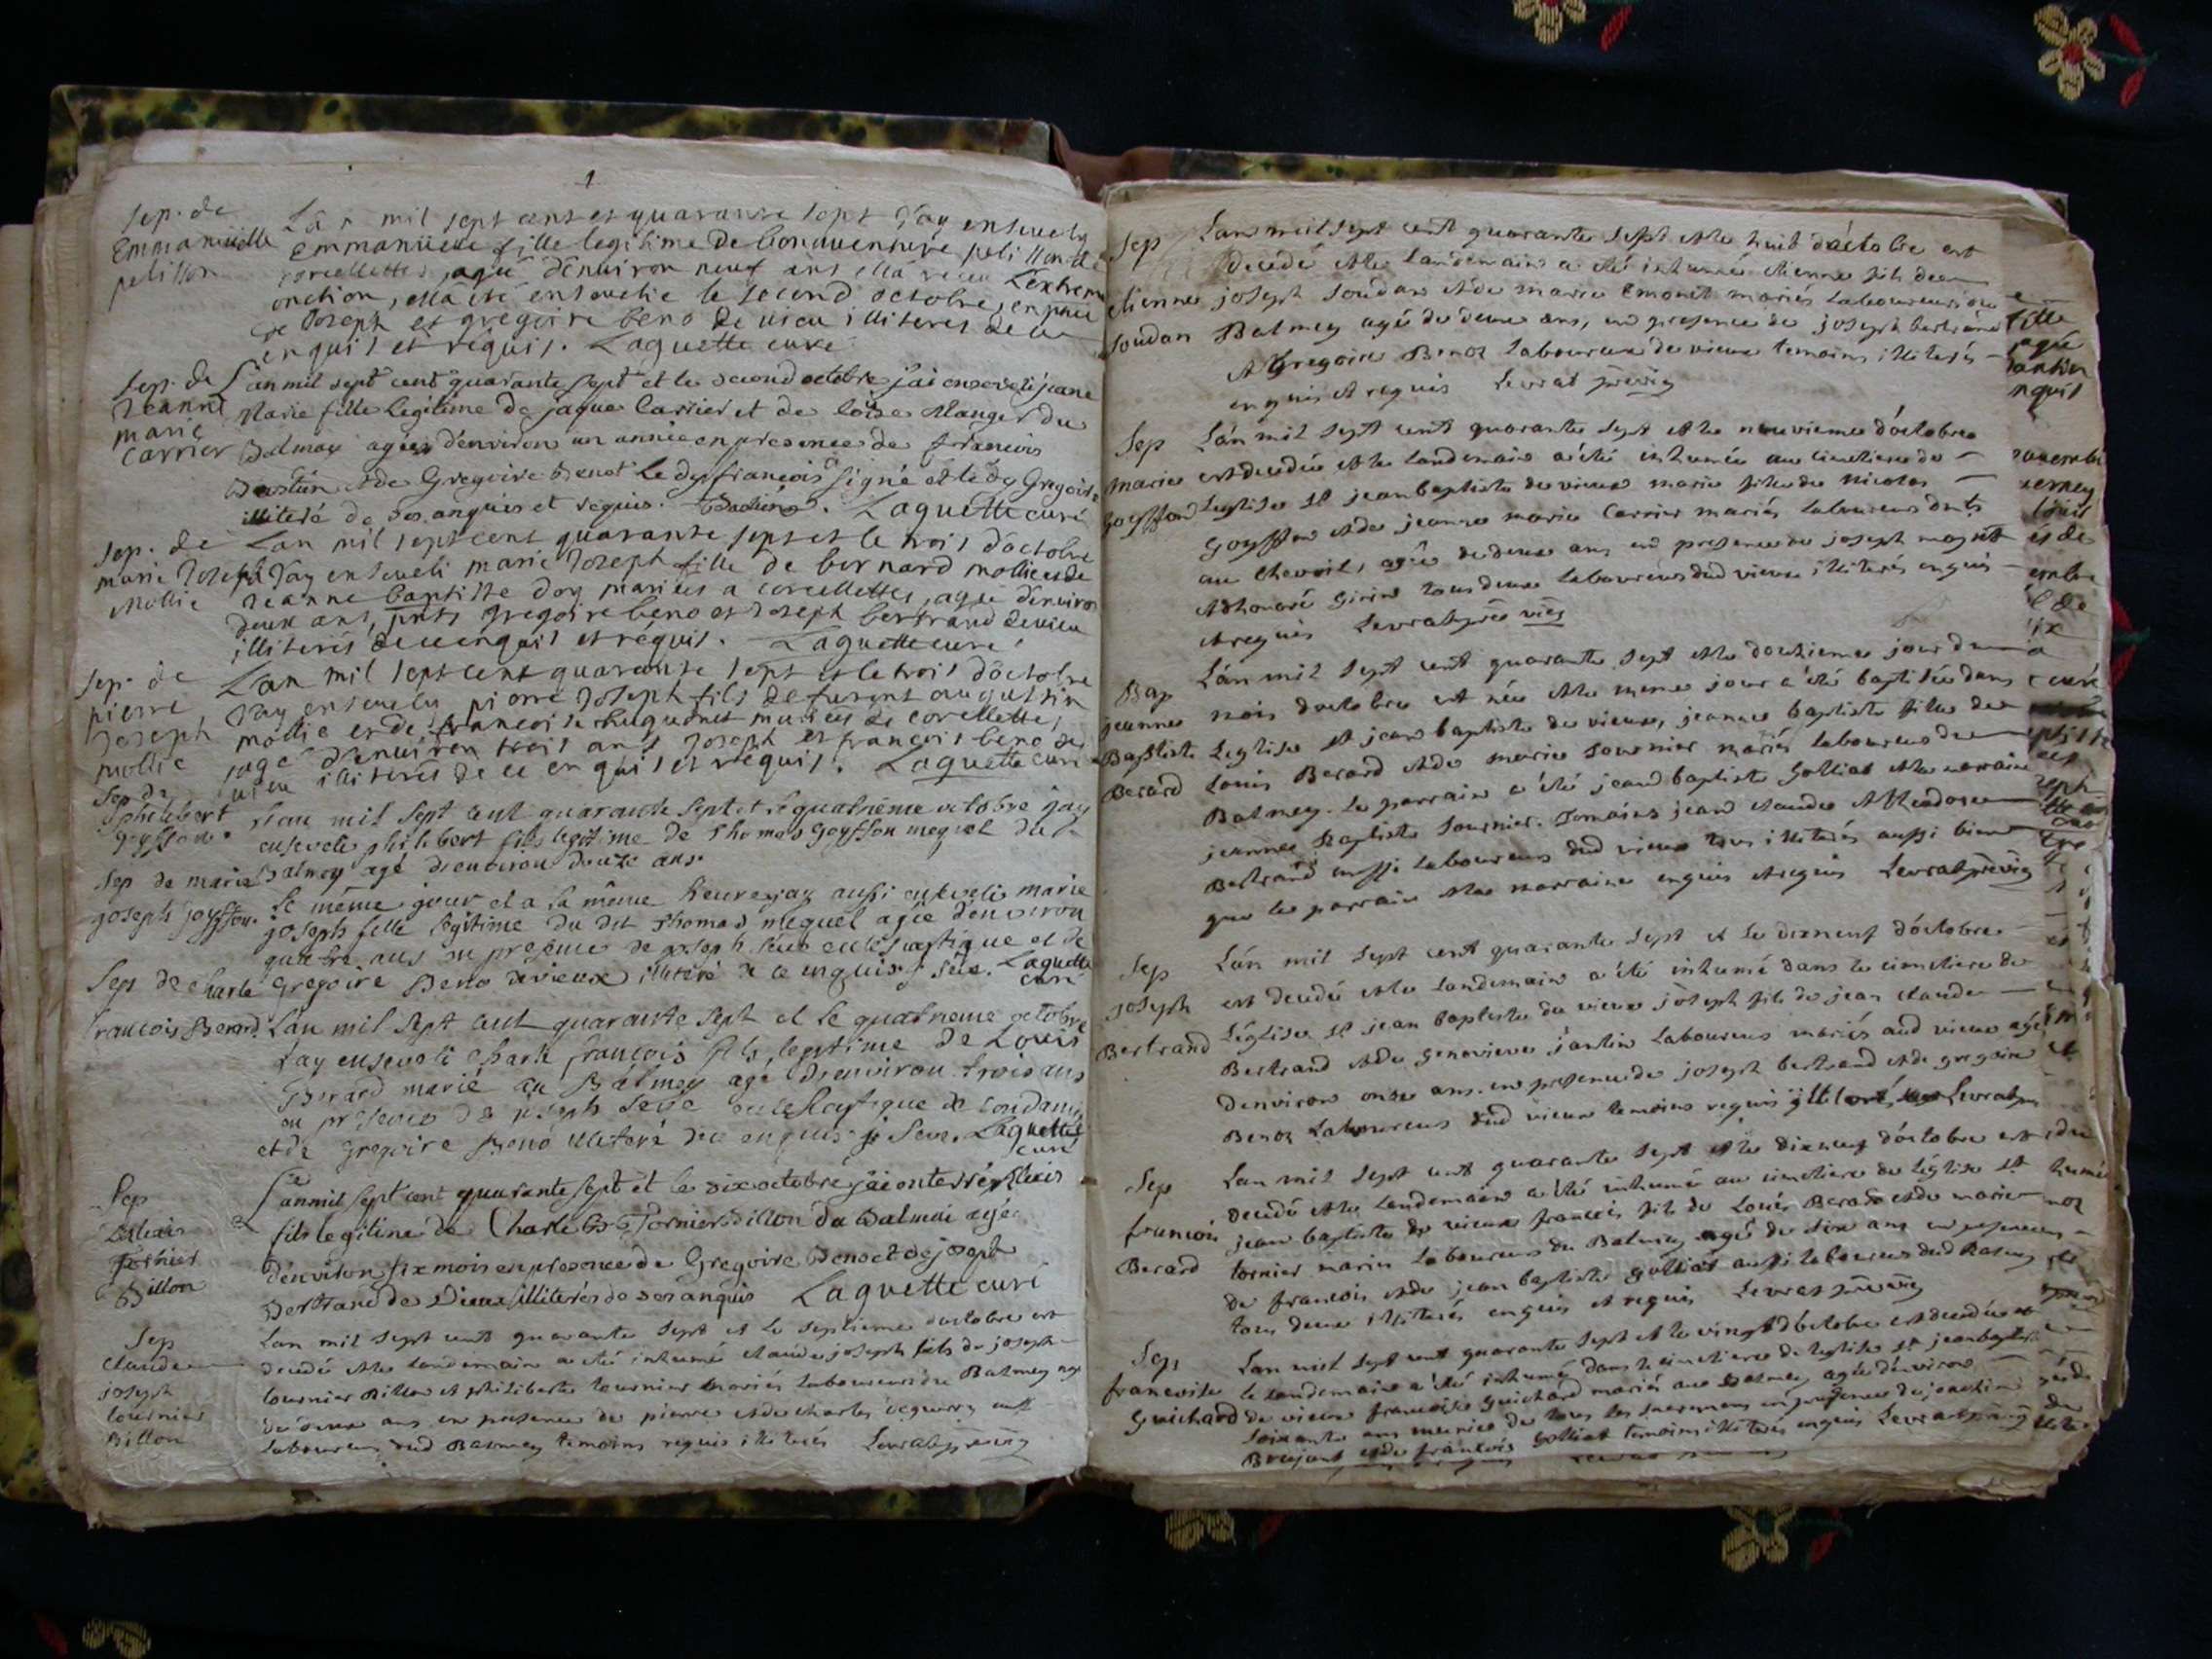 1
Sep. de
Emmanüelle
pelisson
L'an mil sept cent et quarante sept J'ay enseuely
Emmanüelle fille legitime de bonauenture pelisson de
corcellettes, agée d'enuiron neuf ans ella receu L'extreme
onction, ella été enseuelie le second octobre, en pnce
de Joseph et gregoire beno de uieu illiteres de ce
enquis et requis. Laguette curé
Sep. de
Jeanne
marie
Carrier
L'an mil sept cent quarante sept et le second octobre j'ai enseveli jeane
Marie fille legitime de jaque Carrier et de loüise Manger du
Balmay agée d'environ un année en presence de françois
et de Gregoire Benot le dy françois signé et le dy Gregoire
illiteré de ses anquis et requis. Laguette curé
Sep. de
marie Joseph
Mollie
L'an mil sept cent quarante sept et le trois d'octobre
J'ay enseueli marie Joseph fille de bernard mollie et de
Jeanne baptiste doy mariés a corcellettes, agée d'enuiron
deux ans, pnts gregoire beno et Joseph bertrand de uieu
illiterés de ce enquis et requis. Laguette curé
Sep. de
pierre
Joseph
mollie
L'an mil sept cent quarante sept et le trois d'octobre
J'ay enseuely pierre Joseph fils de furent augustin
mollie et de francoise huguenet mariés de corcellettes,
agé d'enuiron trois ans Joseph et francois beno de
uieu illiterés de ce enquis et requis. Laguette curé
Sep de
philibert
goyffon.
L'an mil sept cent quarante sept et le quatrieme octobre j'ay
enseveli philibert fils legitime de Thomas Goyffon meguel du
Balmey agé d'environ douze ans.
Sep de marie
joseph goyffon.
le même jour et a la même heure j'ay aussi enseveli marie
joseph fille legitime du dit Thomas meguel agée d'environ
quatre ans en presence de joseph seve eclesiastique et de
Gregoire Beno de vieux illiteré de ce enquis j seve. Laguette
curé
Sep de charle
francois Berard.
L'an mil sept cent quarante sept et le quatrieme octobre
j'ay enseveli charle francois fils legitime de Louis
Berard marié au Balmey agé d'environ trois ans
en presence de joseph seve ecclesiastique de
et de Gregoire Beno illiteré de ce enquis j Seve. Laguette
curé
Sep
Alexis
Tornier
Billon
L'an mil sept cent quarante sept et le six octobre j'ai enterré Alexis
fils legitime de Charle Tornier Billon du Balmai agé
d'environ six mois en presence de Gregoire Beno et de joseph
Bertrand de Vieux illiterés de ses anquis Laguette curé
Sep
Claude
joseph
tournier
Billon
Lan mil sept cent quarante sept et le septieme doctobre est
decedé et le landemain a été inhumé claude joseph fils de joseph
tournier Billon et philiberte tournier mariés laboureurs du Balmey agé
de deux ans en presence de pierre et de charles
laboureurs dud Balmey temoins requis illiterés Levrat
Sep
etienne
soudan
Lan mil sept cent quarante sept et le huit d'octobre est
decedé et le landemain a été inhumé etienne fils de
joseph soudan et de marie Emonet mariés laboureurs du
Balmey agé de deux ans, en presence de joseph bertrand
et Gregoire Benoz laboureurs de vieux temoins illiterés
enquis et requis Levrat
Sep
marie
goyffon
Lán mil sept cent quarante sept et le neuvieme d'octobre
est decedée et le landemain a été inhumée au cimetiere de
Leglise St jean baptiste de vieux marie fille de Nicolas
Goyffon et de jeanne marie Carrier mariés laboureurs
au Chevril, agée de deux ans en presence de joseph
et honoré Girin tous deux laboureurs dud vieux illiterés enquis
et requis Levrat
Bap
jeanne
Baptiste
Berard
Lán mil sept cent quarante sept et le douzieme jour du
mois d'octobre est née et le meme jour a été baptisée dans
Leglise St jean baptiste de vieux, jeanne baptiste fille de
Louis Berard et de marie tournier mariés laboureurs du
Balmey. Le parrain a été jean baptiste Golliat et la marraine
jeanne Baptiste tournier. Temoins jean claude et
Bertrand aussi laboureurs dud vieux tous illiterés aussi bien
que le parrain et la marraine enquis et requis Levrat
Sep
joseph
Bertrand
Lán mil sept cent quarante sept et le dixneuf d'octobre
est decedé et le landemain a été inhumé dans le cimetiere de
Léglise St jean baptiste de vieux joseph fils de jean claude
Bertrand et de Genevieve jantin laboureurs mariés aud vieux agé
d'environ onze ans. en presence de joseph bertrand et de gregoire
Benoz laboureurs dud vieux temoins requis Levrat
Sep
francois
Berard
Lan mil sept cent quarante sept et le dixneuf d'octobre est
decedé et le landemain a été inhumé au cimetiere de léglise St
jean baptiste de vieux francois fils de Louis Berard et de marie
tornier mariés laboureurs du Balmey agé de six ans en presence
de francois et de jean baptiste Golliat aussi laboureurs dud Balmey
tous deux illiterés enquis et requis Levrat
Sep
francoise
Guichard
Lan mil sept cent quarante sept et le vingt d'octobre est decedée et
le landemain a été inhumée dans le cimetiere de leglise St jean baptiste
de vieux francoise Guichard mariée au Balmey agée d'environ
soixante ans munie de tous les sacremens en presence de joachim
Brujant et de francois Golliat temoins illiterés enquis Levrat